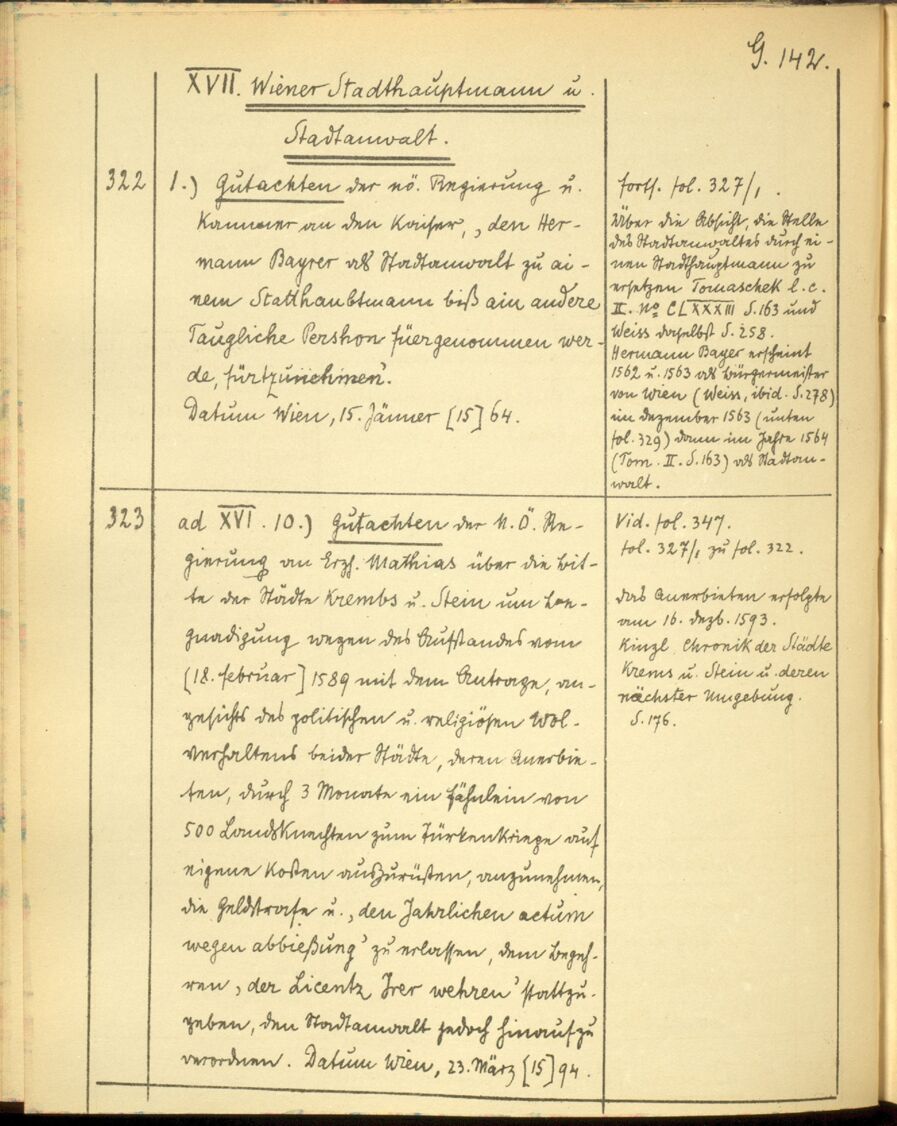 G. 142.
XVII. Wiener Stadthauptmann u.
Stadtanwalt.
322
1.) Gutachten der nö. Regierung u.
Kammer an den Kaiser, „den Her-
mann Bayrer als Stadtanwalt zu ai-
nem Statthaubtmann biß ain andere
Taugliche Pershon füergenommen wer-
de, fürtzunehmen'.
Datum Wien, 15. Jänner [15] 64.
forts. fol. 327/1.
Über die Absicht, die Stelle
des Stadtanwaltes durch ei-
nen Stadthauptmann zu
ersetzen Tomaschek l. c.
II. No CLXXXIII S. 163 und
Weiss daselbst S. 258.
Hermann Bayer erscheint
1562 u. 1563 als Bürgermeister
von Wien (Weiss, ibid. S. 278)
im Dezember 1563 (unten
fol. 329) dann im Jahre 1564
(Tom. II. S. 163) als Stadtan-
walt.
323
ad XVI. 10.) Gutachten der N. Ö. Re-
gierung an Erzh. Mathias über die Bit-
te der Städte Krembs u. Stein um Be-
gnadigung wegen des Aufstandes vom
[18. Februar] 1589 mit dem Antrage, an-
gesichts des politischen u. religiösen Wol-
verhaltens beider Städte, deren Anerbie-
ten, durch 3 Monate ein Fähnlein von
500 Landsknechten zum Türkenkriege auf
eigene Kosten auszurüsten, anzunehmen,
die Geldstrafe u. ‚den Jahrlichen actum
wegen abbießung' zu erlassen, dem Begeh-
ren ‚der Licentz Irer wehren' stattzu-
geben, den Stadtanwalt jedoch hinaufzu
verordnen. Datum Wien, 23. März [15] 94.
Vid. fol. 347.
fol. 327/1 zu fol. 322.
Das Anerbieten erfolgte
am 16. Dezb. 1593.
Kinzl Chronik der Städte
Krems u. Stein u. deren
nächster Umgebung.
S. 176.